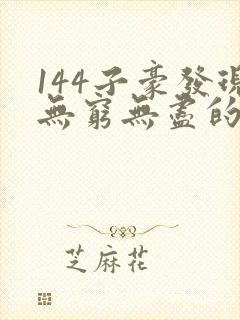 144子豪發現
無窮無盡的
芝麻花